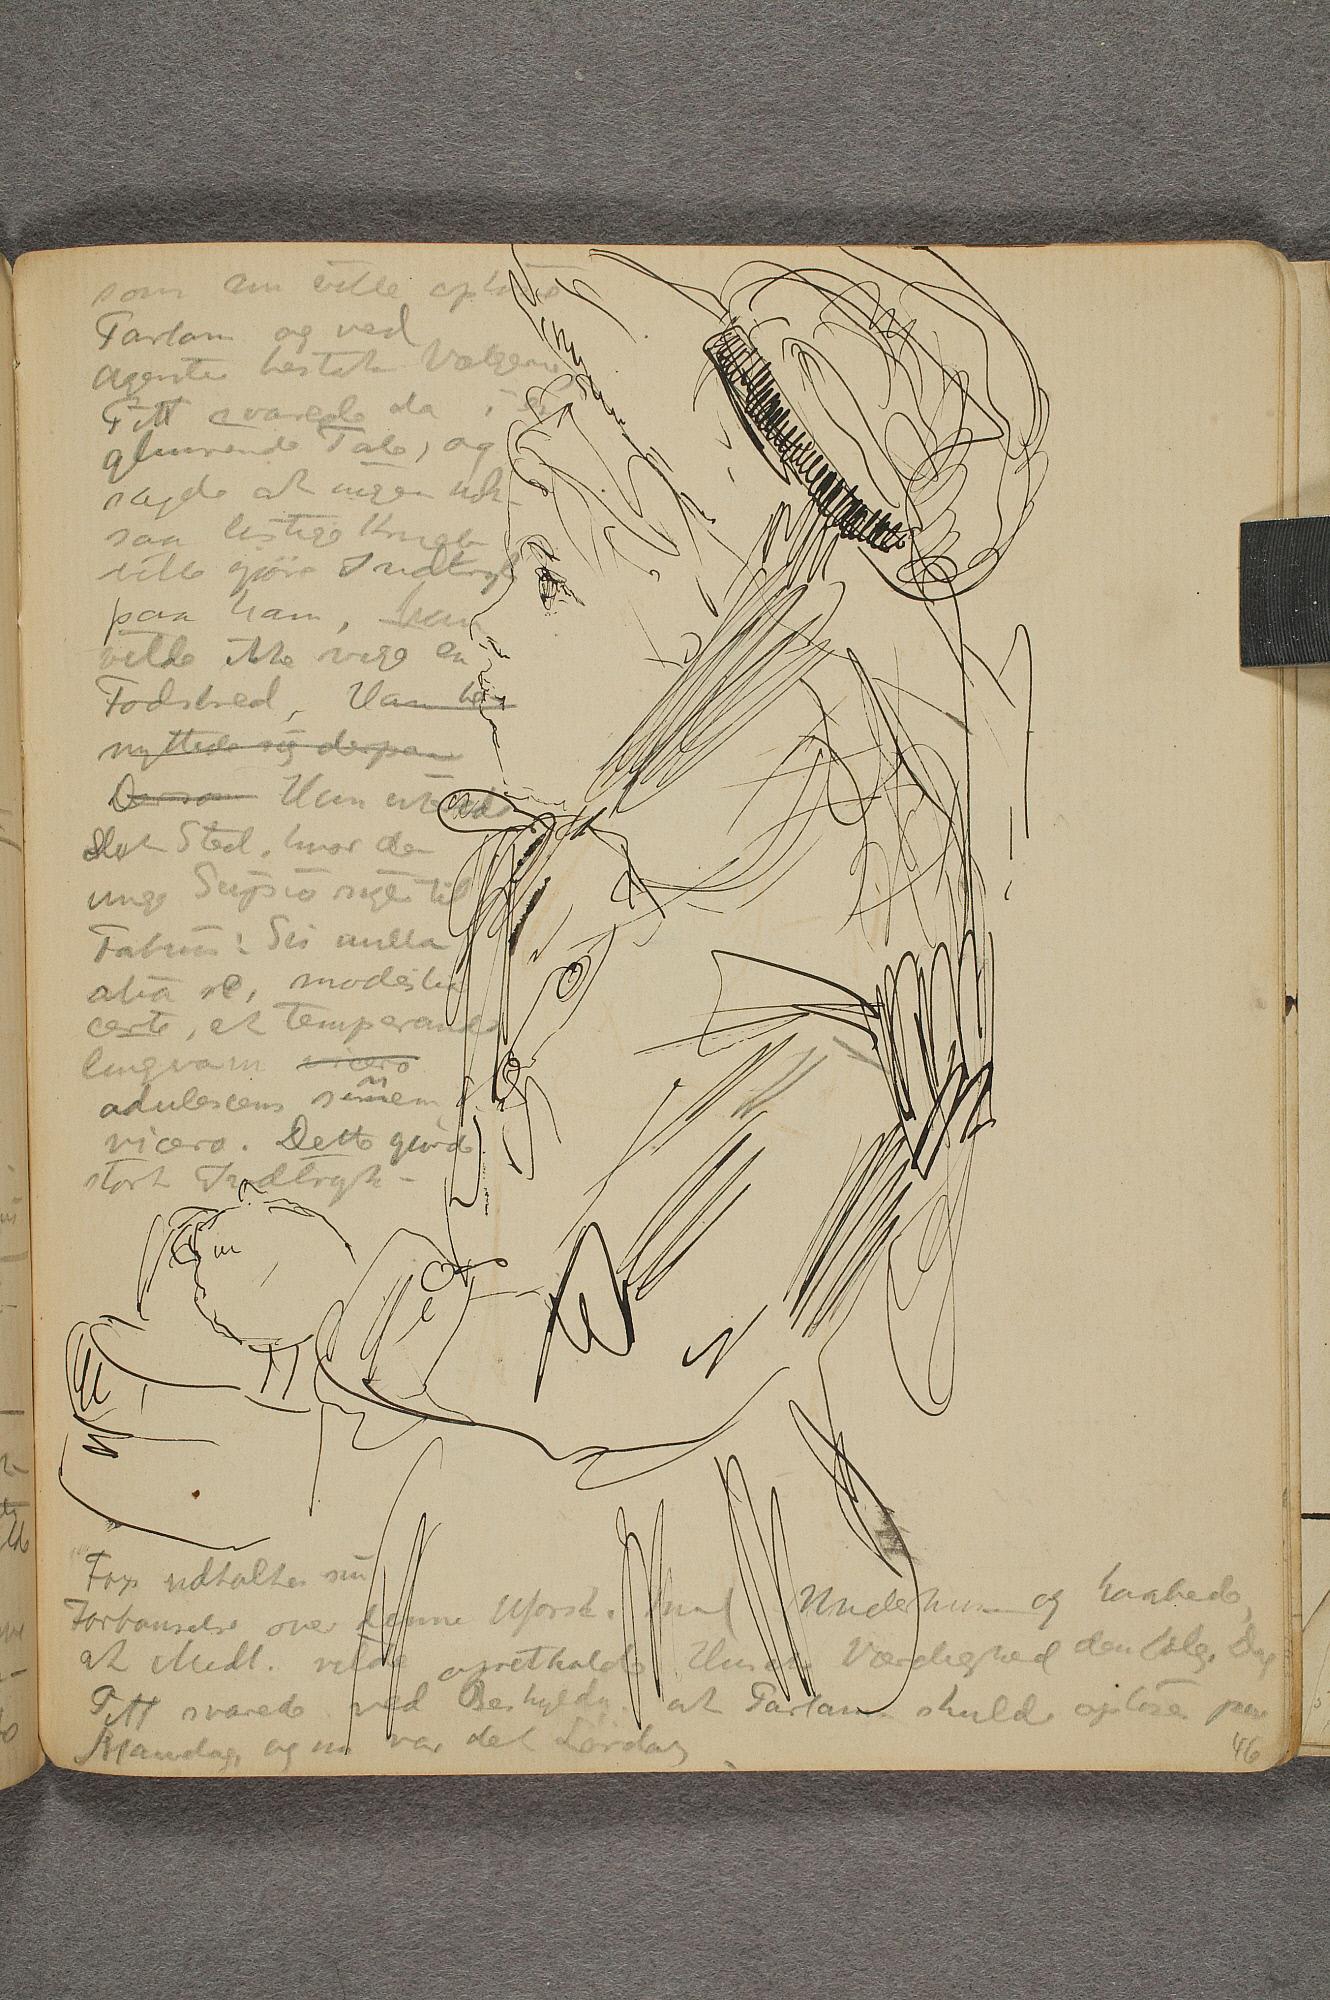 som nu vilde opløse
Parlam og ved
Agenter bestik Valgene
Pitt svarede da i en
glimrende Tale, og
sagde at ingen nok
saa listige Kneb
vilde gjøre Indtryk
paa ham, han
vilde ikke vige en
Fodsbred, Han be-
nyttede sig derpaa
Dersom Han
det Sted, hvor den
unge Scipio siger til
Fabius: Si nulla
alia re, modestia
certe, et temperando
lingvam vicero
adulescens senem
vicero. Dette gjorde
stort Indtryk -
Fox udtalte sin
Forbauselse over denne Uforsk. mod Underhus og haabede,
at Medl. vilde opretholde Husets Værdighed den følg. Dag
Pitt svarede ved Beskyldn. at Parlam skulde opløses paa
Mandag, og nu var det Lørdag
46